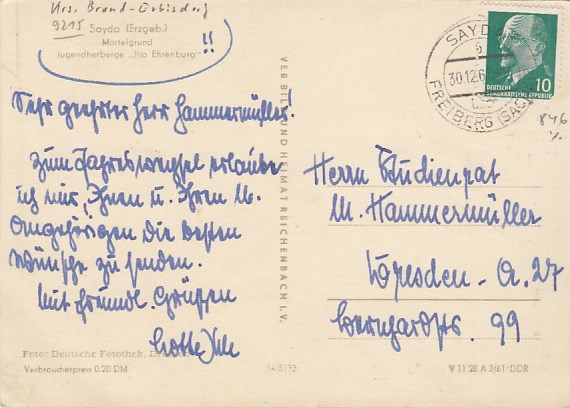 Krs. Brand-Erbisdorf
9215 Sayda (Erzgeb.)
Mortelgrund
Jugendherberge "Ilja Ehrenburg"
!!
Sehr geehrter Herr Hammermüller!
Zum Jahreswechsel erlaube
ich mir, Ihnen u. Ihren lb.
Angehörigen die besten
Wünsche zu senden.
Mit freundl. Grüßen
Foto: Deutsche Fotothek, Dresden
Verbraucherpreis 0.20 DM
VEB BILD UND HEIMAT REICHENBACH I. V.
SAYDA
30.12.6
FREIBERG (SACHS)
DEUTSCHE
DEMOKRATISCHE REPUBLIK
10
846
Herrn Studienrat
M. Hammermüller
Dresden-A. 27
Bernhardstr. 99
V 11 28 A 3/61 DDR